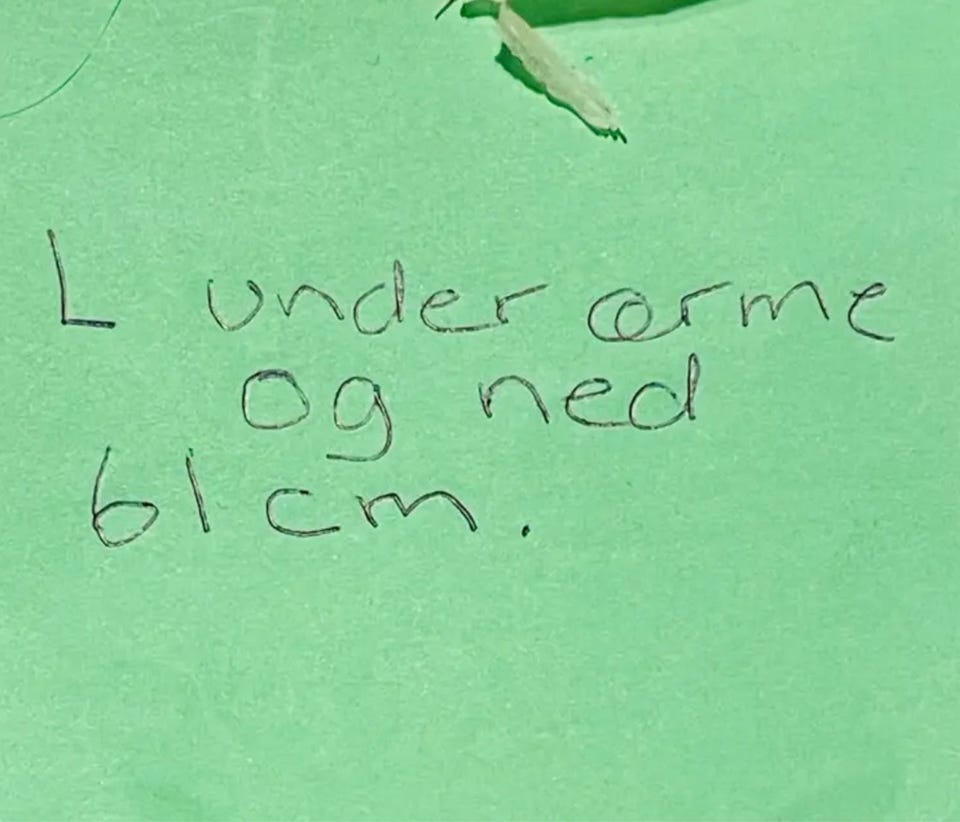 L under ærme
og ned
61 cm.